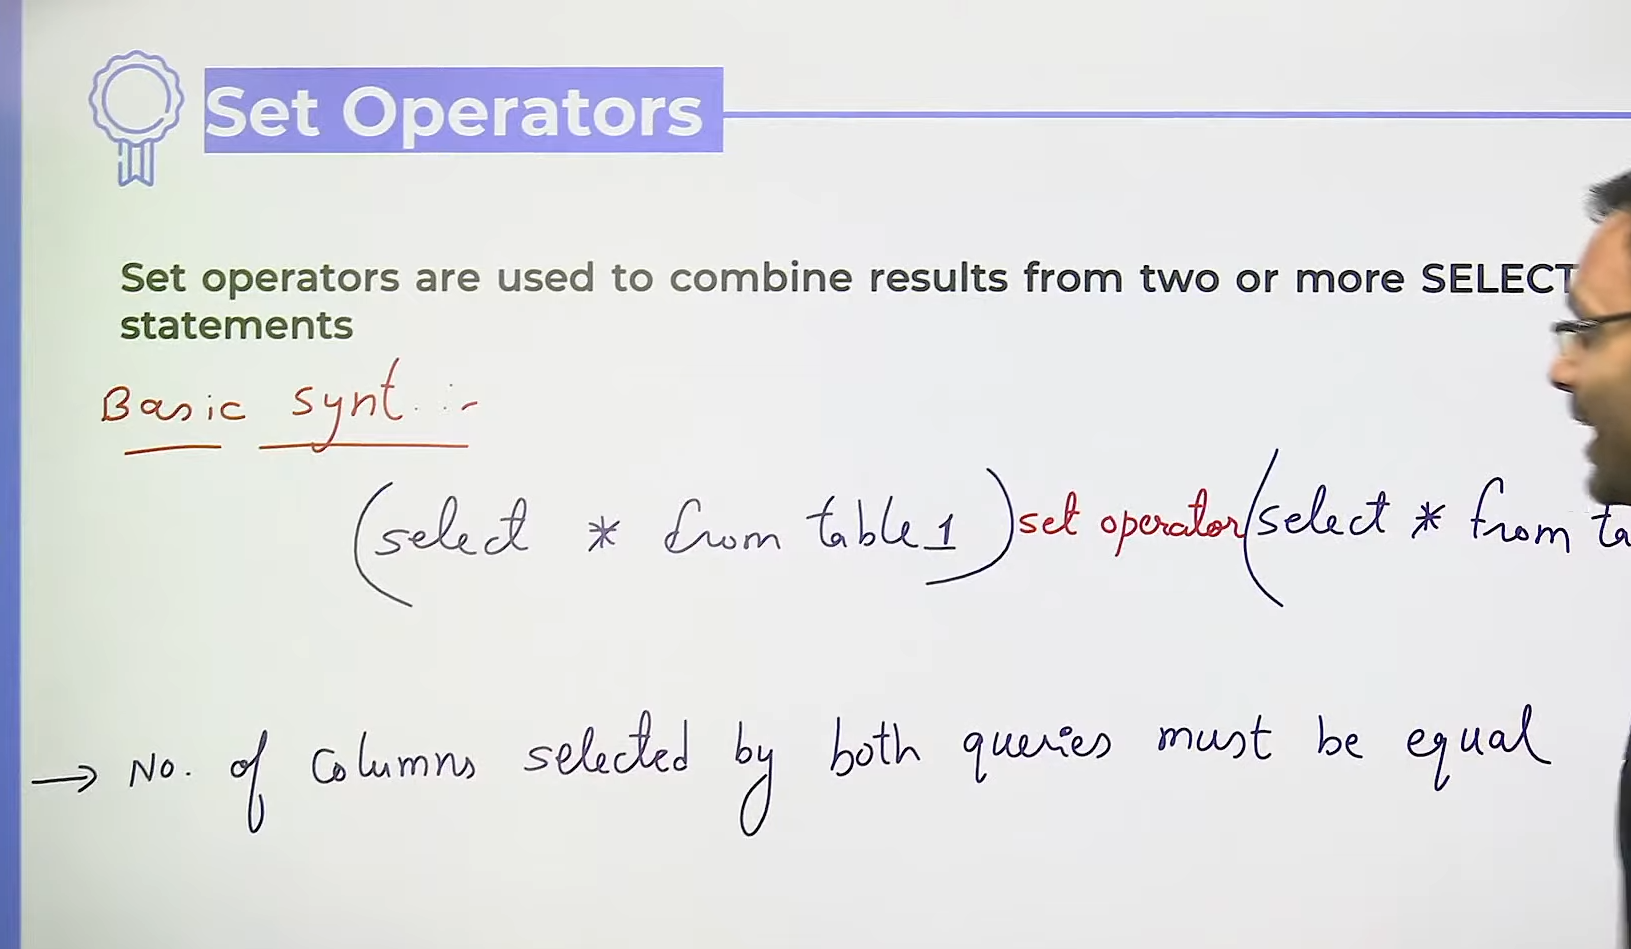 Set Operators
Set operators are used to combine results from two or more SELECT
statements
Basic synt :-
(select * from table 1) set operator (select * from ta
→ No. of columns selected by both queries must be equal